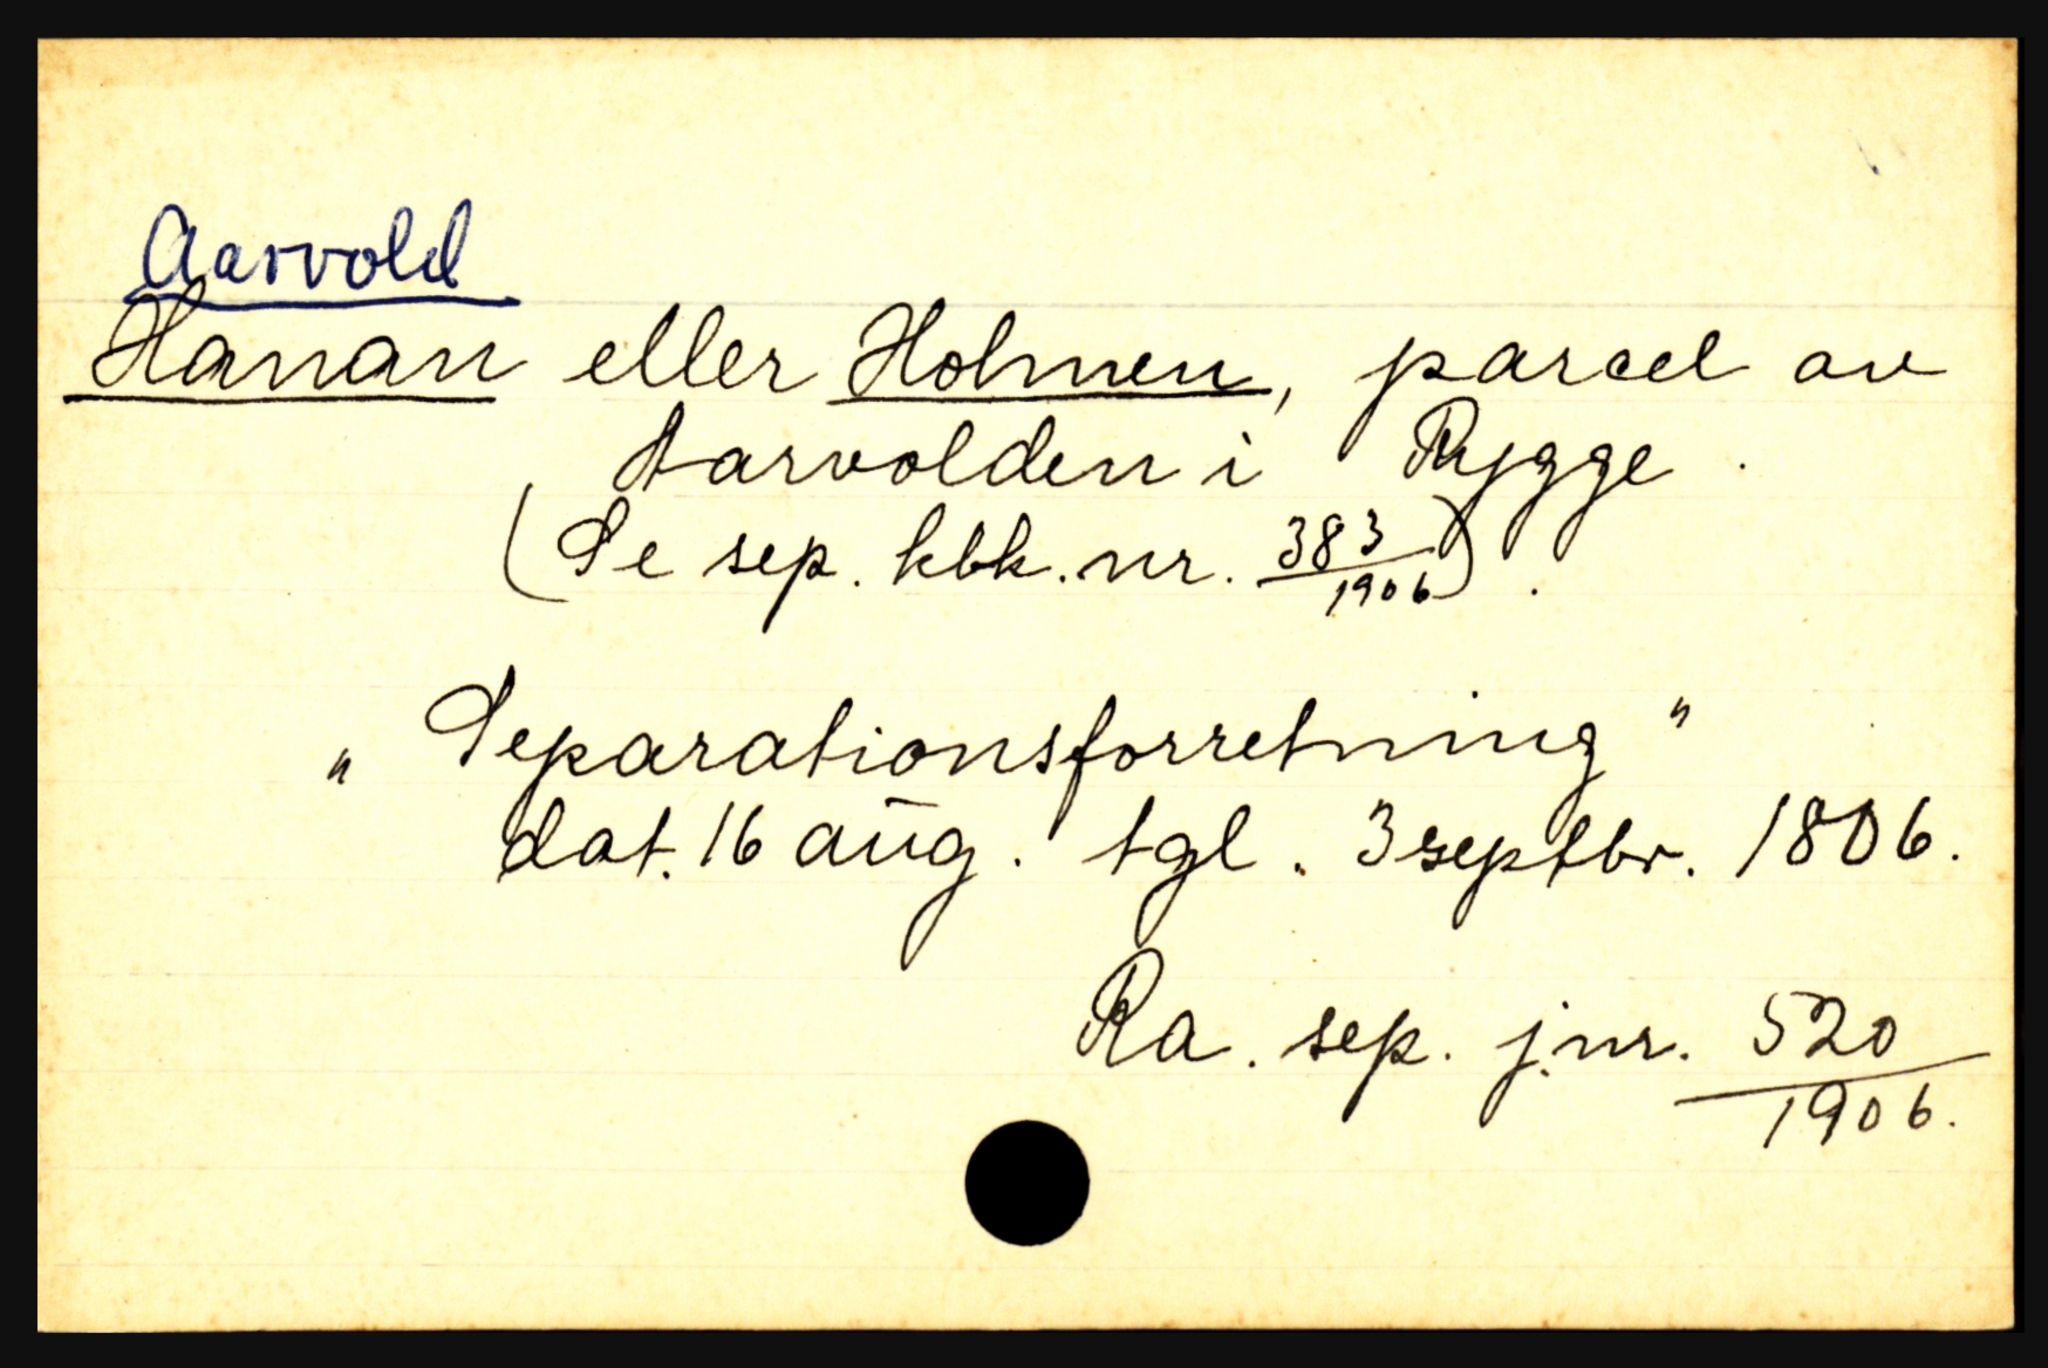 Aarvold
Hanan eller Holmen, parcel av
Aarvolden i Rygge.
(Se sep. kbk. nr. 383/1906).
„Separationsforretning"
dat. 16 aug. tgl. 3 septbr. 1806.
Ra. sep. j.nr. 520/1906.